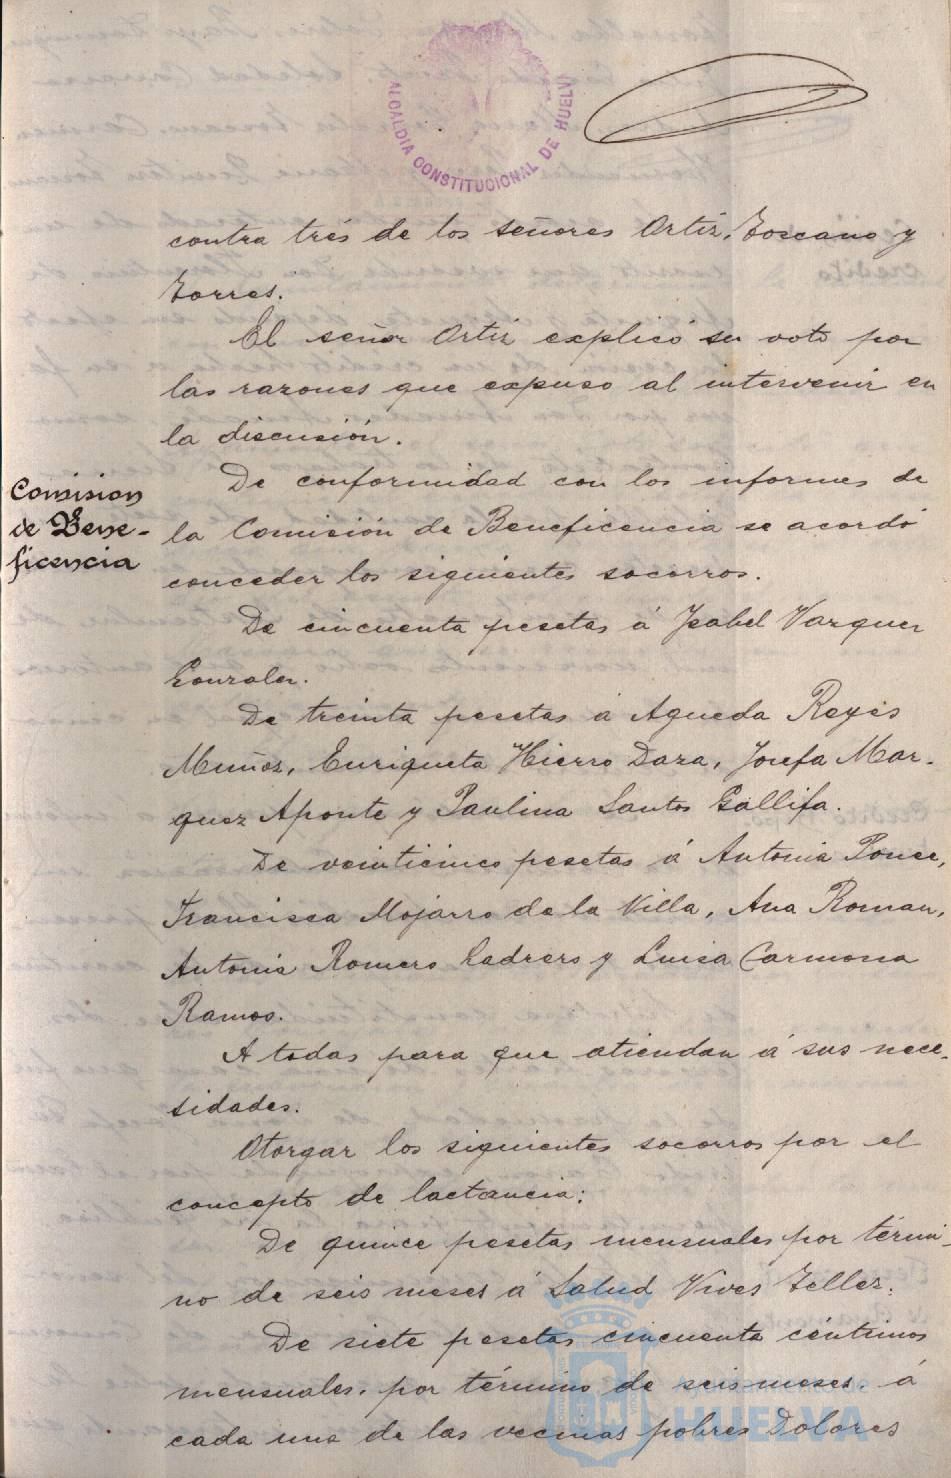 ALCALDIA CONSTITUCIONAL DE HUELVA
contra trés de los señores Ortiz, Toscano y
Torres.
El señor Ortiz explicó su voto por
las razones que expuso al intervenir en
la discusión.
Comision
de Bene-
ficencia
De conformidad con los informes de
la Comisión de Beneficencia se acordó
conceder los siguientes socorros.
De cincuenta pesetas á Isabel Varquez
Gonzalez.
De treinta pesetas á Agueda Reyes
Muñoz, Enriqueta Hierro Daza, Josefa Mar-
quez Aponte y Paulina Santos Gallifa.
De veinticinco pesetas á Antonia Ponce,
Francisca Mojarro de la Villa, Ana Roman,
Antonia Romero Ladrero y Luisa Carmona
Ramos.
A todas para que atiendan á sus nece-
sidades.
Otorgar los siguientes socorros por el
concepto de lactancia:
De quince pesetas mensuales por térmi-
no de seis meses á Salud Vives Tellez.
De siete pesetas cincuenta céntimos
mensuales, por término de seis meses, á
cada una de las vecinas pobres Dolores
Ayuntamiento de
HUELVA